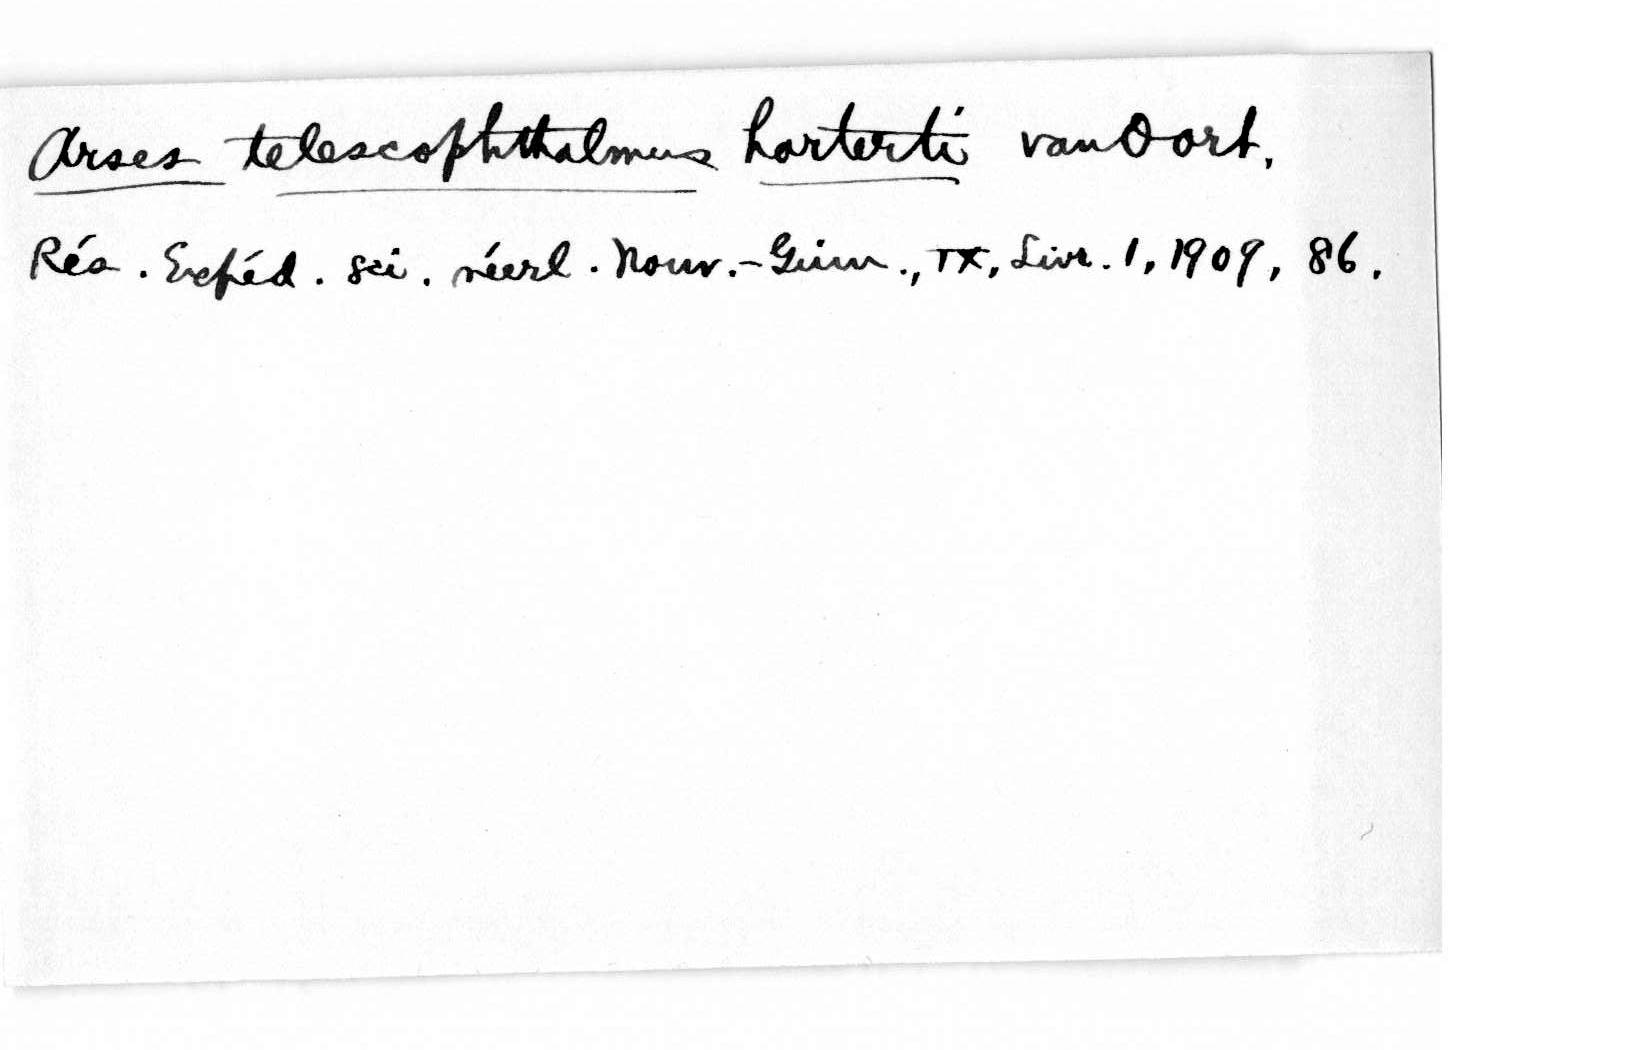 Arses telescophthalmus harterti van Oort,
Rés. Expéd. sci. néerl. Nouv.-Guin., IX, Livr. 1, 1909, 86.